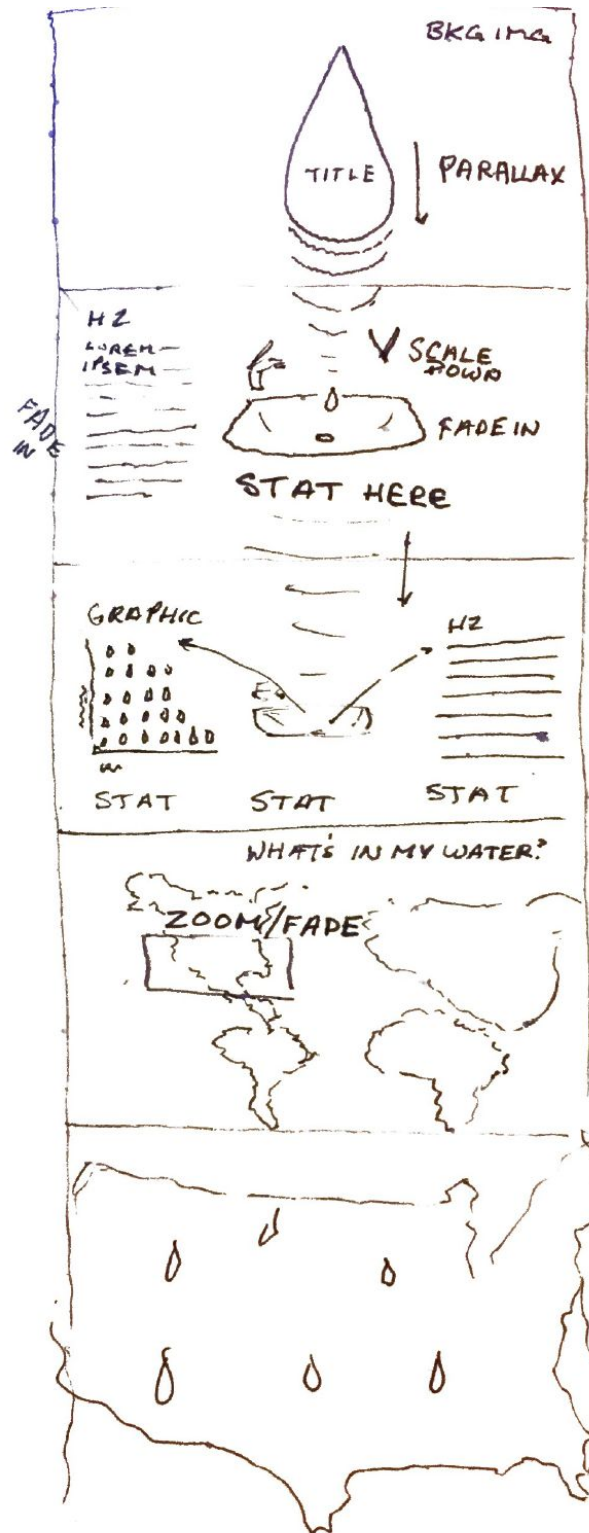 BKG IMG
TITLE
PARALLAX
H2
LOREM
IPSEM
SCALE
DOWN
FADE
IN
FADE IN
STAT HERE
GRAPHIC
H2
STAT
STAT
STAT
WHAT'S IN MY WATER?
ZOOM/FADE